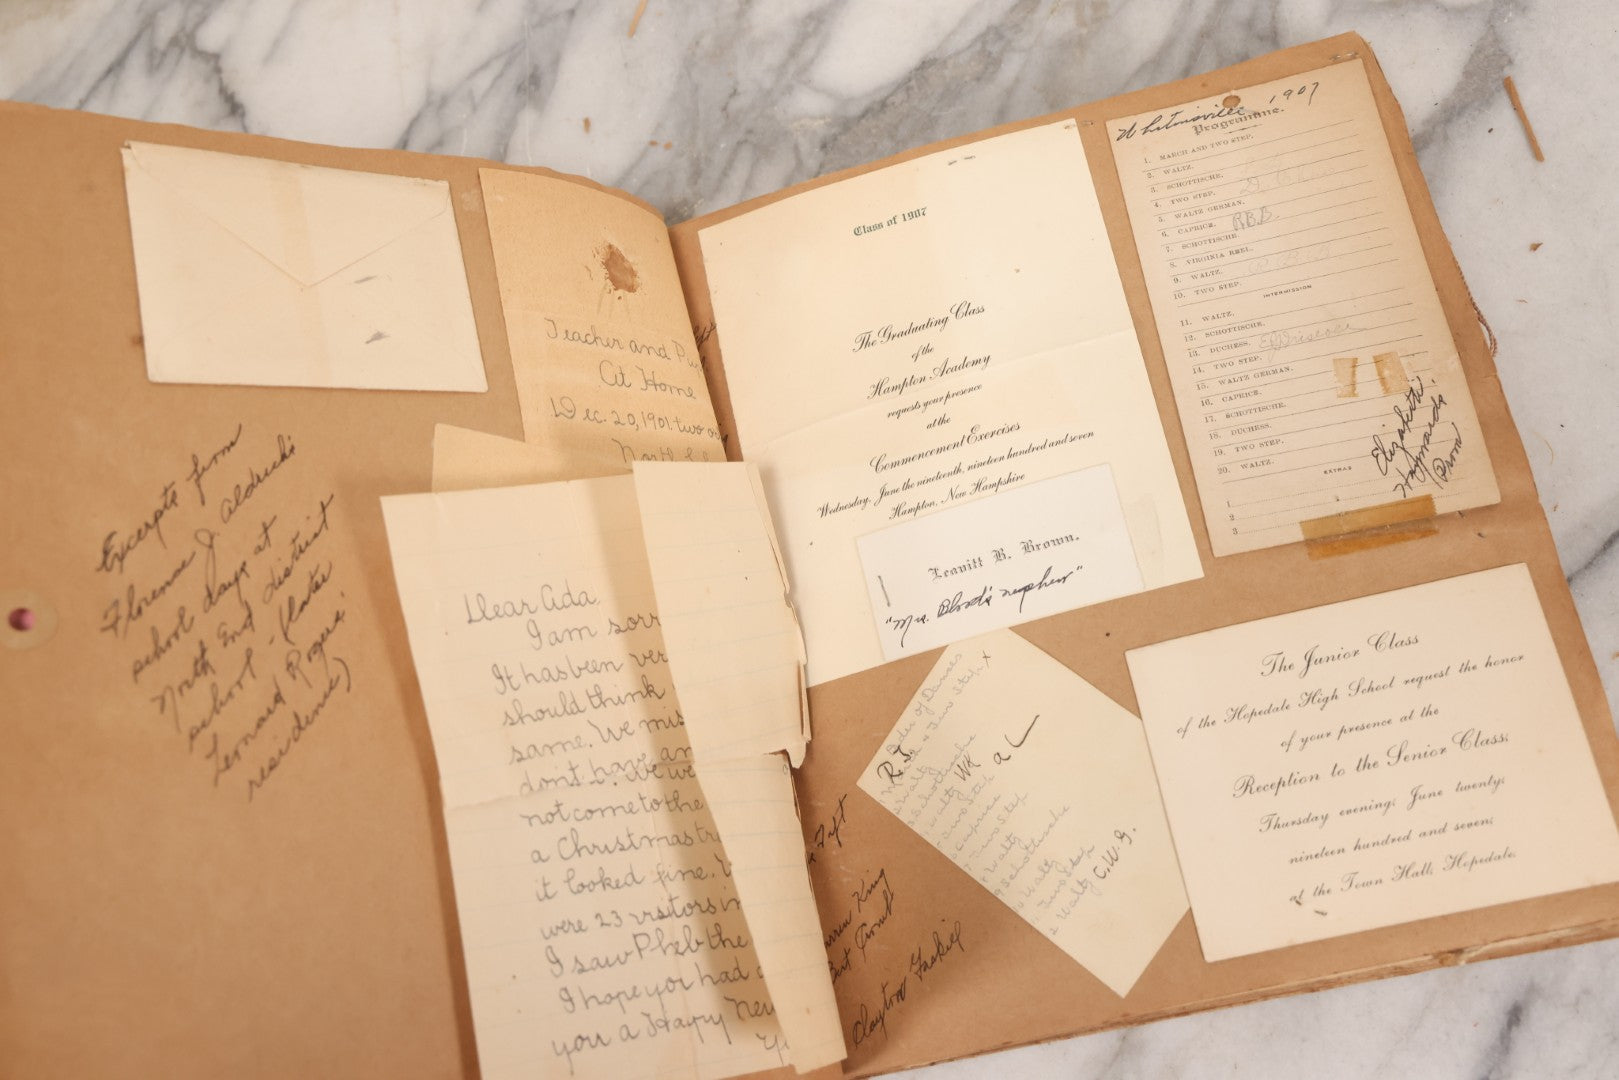 Excerpts from
Florence J. Aldrich's
school days at
North End district
school - (later
Leonard Rogers'
residence)
Teacher and
At Home
Dec. 20, 1901. two
Dear Ada,
I am
It has been
should think
same. We
don't have
We
not come to the
a Christmas
it looked fine.
were 23 visitors in
I saw Phebe the
I hope you had
you a Happy New
Warren King
Clayton Gaskill
Class of 1907
The Graduating Class
of the
Hampton Academy
requests your presence
at the
Commencement Exercises
Wednesday, June the nineteenth, nineteen hundred and seven
Hampton, New Hampshire
Leavitt B. Brown.
"Mrs. Blood's nephew"
Whitinsville 1907
Programme.
1. MARCH AND TWO STEP.
2. WALTZ.
3. SCHOTTISCHE.
4. TWO STEP.
5. WALTZ GERMAN.
6. CAPRICE. R.B.B.
7. SCHOTTISCHE
8. VIRGINIA REEL.
9. WALTZ.
10. TWO STEP.
INTERMISSION
11. WALTZ.
12. SCHOTTISCHE.
13. DUCHESS. E. Driscoll
14. TWO STEP.
15. WALTZ GERMAN.
16. CAPRICE.
17. SCHOTTISCHE.
18. DUCHESS.
19. TWO STEP.
20. WALTZ.
EXTRAS
1
2
3
Elizabeth
Haywards
Prom
Order of Dances
Two Step x
Waltz
Schottische
Waltz
Two Step
Caprice
Two Step
Waltz
Schottische
Waltz
Two Step
Waltz C.W.G.
The Junior Class
of the Hopedale High School request the honor
of your presence at the
Reception to the Senior Class,
Thursday evening, June twenty,
nineteen hundred and seven,
at the Town Hall, Hopedale.